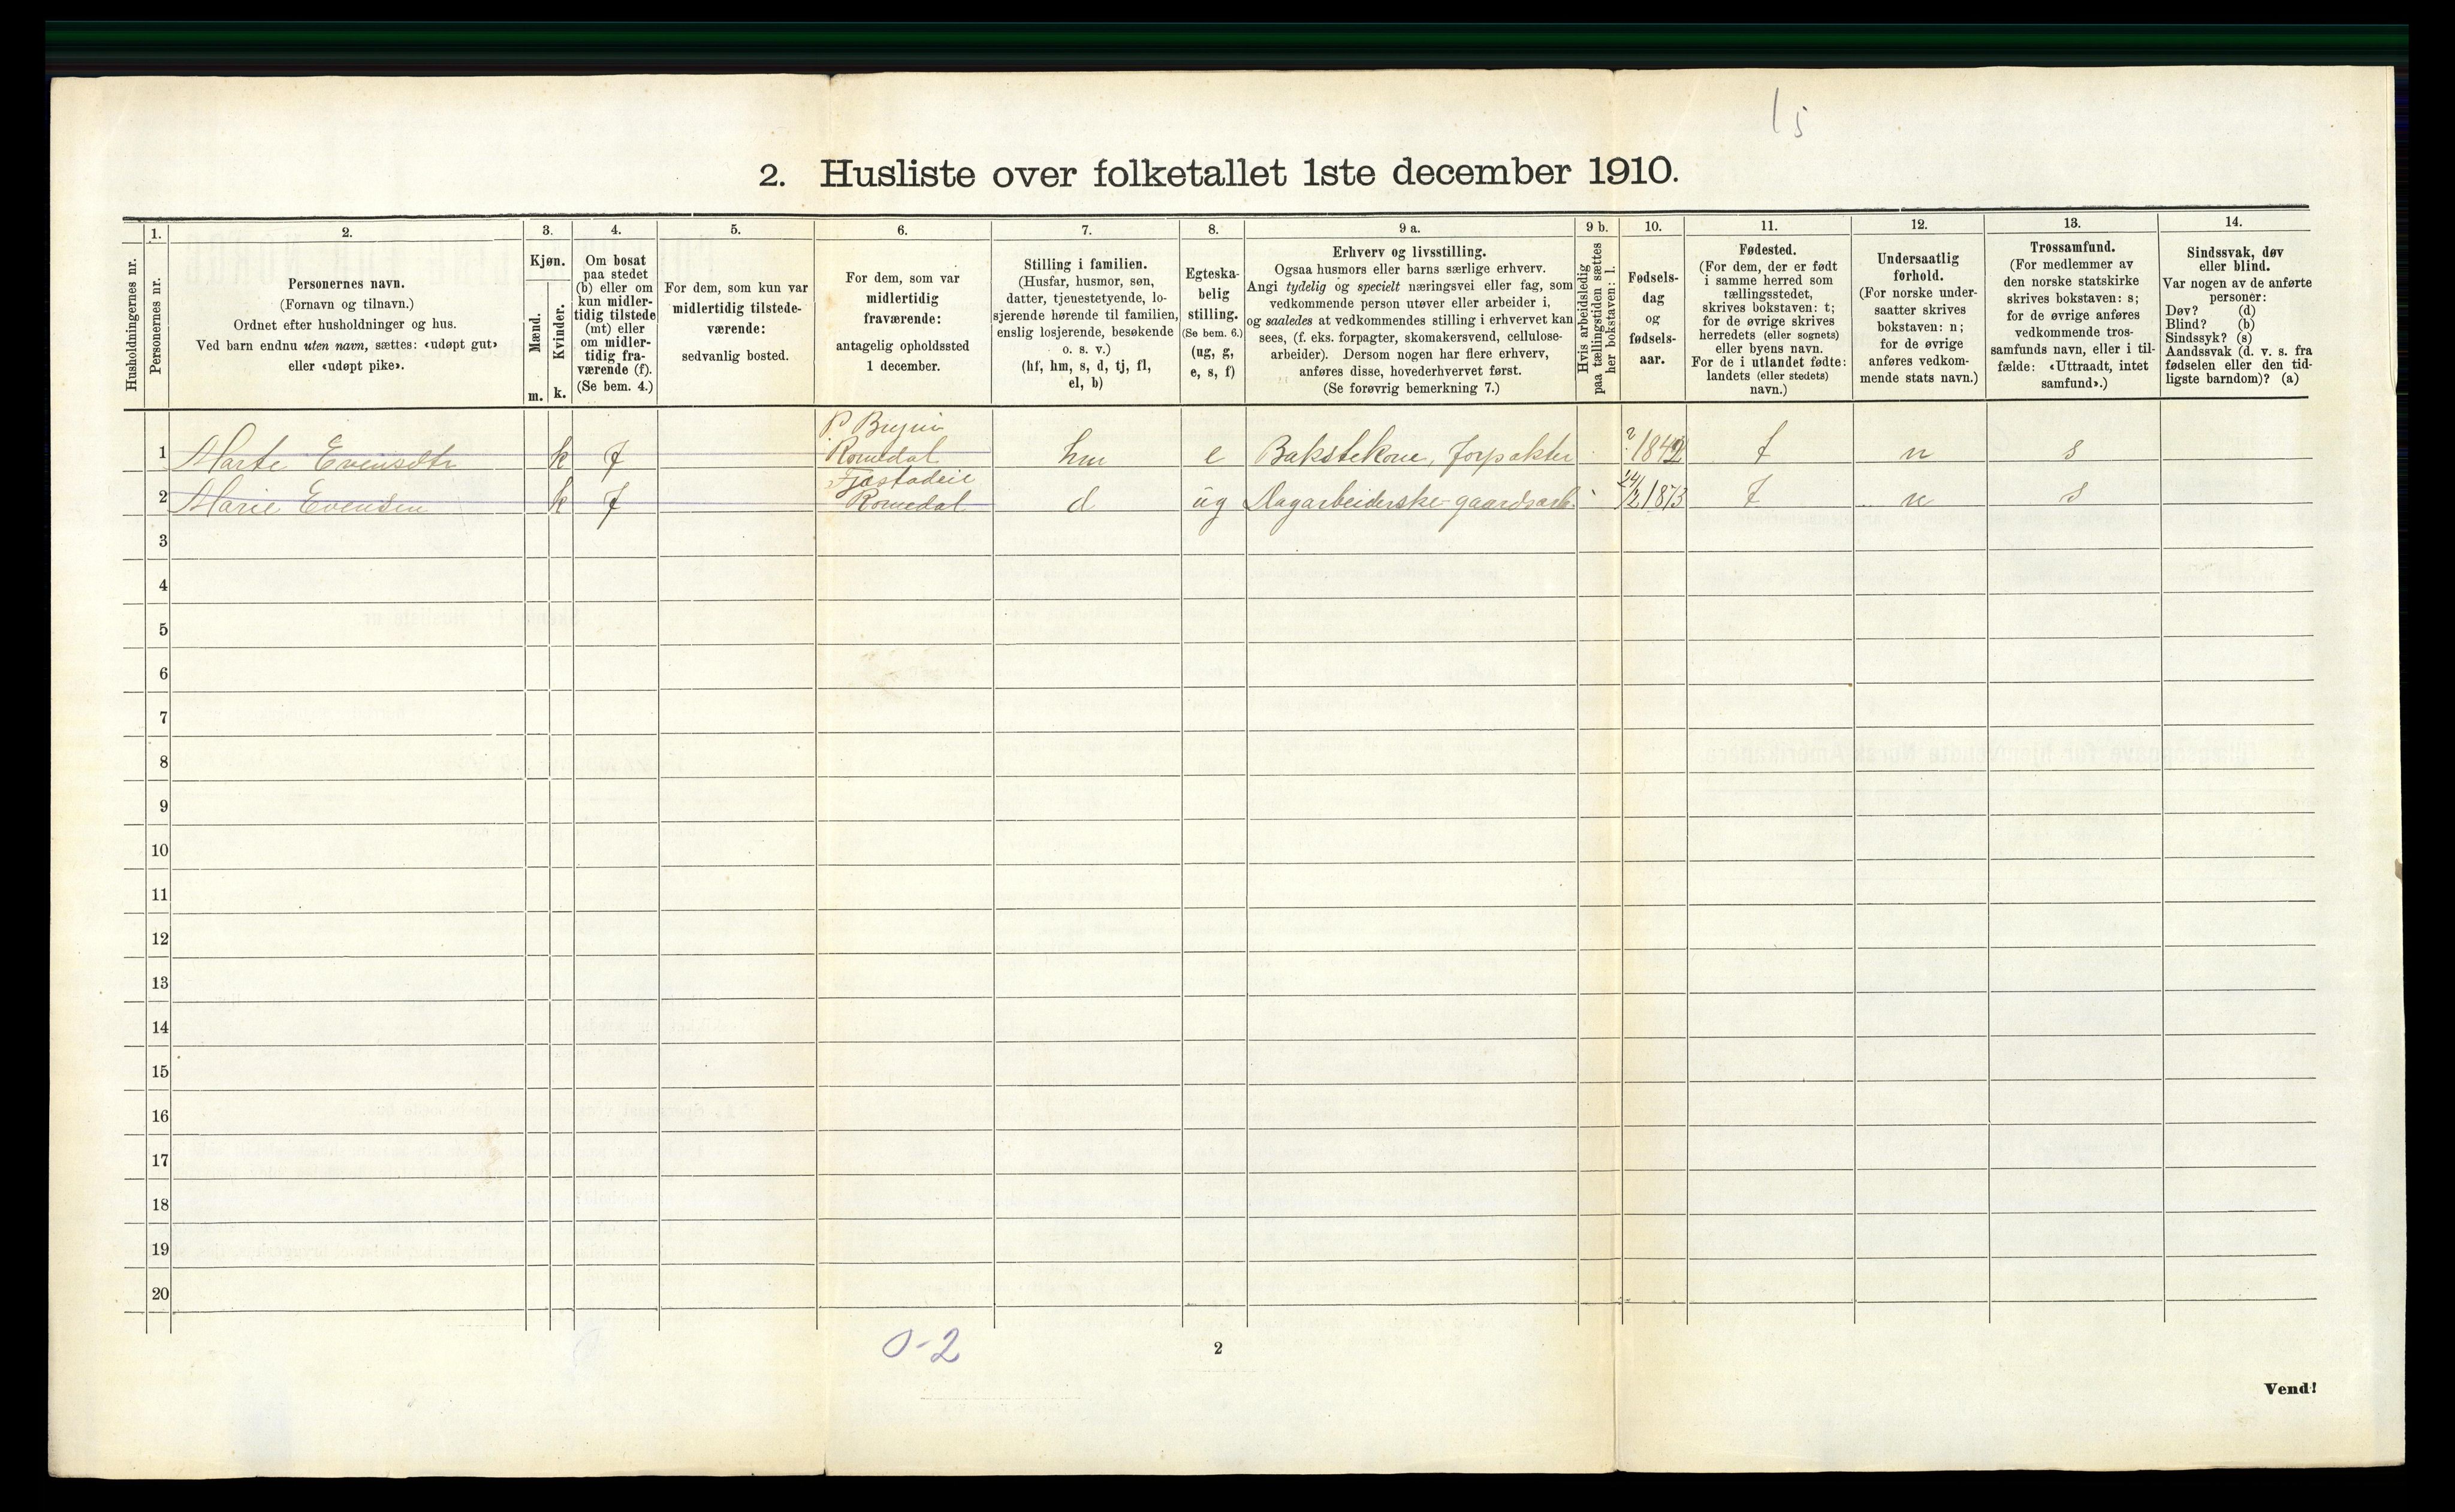 15
2. Husliste over folketallet 1ste december 1910.
Husholdningernes nr.
1.
Personernes nr.
2.
Personernes navn.
(Fornavn og tilnavn.)
Ordnet efter husholdninger og hus.
Ved barn endnu uten navn, sættes: «udøpt gut»
eller «udøpt pike».
3.
Kjøn.
Mænd.
Kvinder.
m. k.
4.
Om bosat
paa stedet
(b) eller om
kun midler-
tidig tilstede
(mt) eller
om midler-
tidig fra-
værende (f).
(Se bem. 4.)
5.
For dem, som kun var
midlertidig tilstede-
værende:
sedvanlig bosted.
6.
For dem, som var
midlertidig
fraværende:
antagelig opholdssted
1 december.
7.
Stilling i familien.
(Husfar, husmor, søn,
datter, tjenestetyende, lo-
sjerende hørende til familien,
enslig losjerende, besøkende
o. s. v.)
(hf, hm, s, d, tj, fl,
el, b)
8.
Egteska-
belig
stilling.
(Se bem. 6.)
(ug, g,
e, s, f)
9 a.
Erhverv og livsstilling.
Ogsaa husmors eller barns særlige erhverv.
Angi tydelig og specielt næringsvei eller fag, som
vedkommende person utøver eller arbeider i,
og saaledes at vedkommendes stilling i erhvervet kan
sees, (f. eks. forpagter, skomakersvend, cellulose-
arbeider). Dersom nogen har flere erhverv,
anføres disse, hovederhvervet først.
(Se forøvrig bemerkning 7.)
9 b.
Hvis arbeidsledig
paa tællingstiden sættes
her bokstaven: l.
10.
Fødsels-
dag
og
fødsels-
aar.
11.
Fødested.
(For dem, der er født
i samme herred som
tællingsstedet,
skrives bokstaven: t;
for de øvrige skrives
herredets (eller sognets)
eller byens navn.
For de i utlandet fødte:
landets (eller stedets)
navn.)
12.
Undersaatlig
forhold.
(For norske under-
saatter skrives
bokstaven: n;
for de øvrige
anføres vedkom-
mende stats navn.)
13.
Trossamfund.
(For medlemmer av
den norske statskirke
skrives bokstaven: s;
for de øvrige anføres
vedkommende tros-
samfunds navn, eller i til-
fælde: «Uttraadt, intet
samfund».)
14.
Sindssvak, døv
eller blind.
Var nogen av de anførte
personer:
Døv? (d)
Blind? (b)
Sindssyk? (s)
Aandssvak (d. v. s. fra
fødselen eller den tid-
ligste barndom)? (a)
1 Marte Evensdtr k f Romedal hm e Bakstekone, forpakter ? 1842 t n s
2 Marie Evensen k f Fjæstadeie Romedal d ug Dagarbeiderske gaardsarb. 24/2 1873 t n s
3
4
5
6
7
8
9
10
11
12
13
14
15
16
17
18
19
20
0-2
2
Vend!